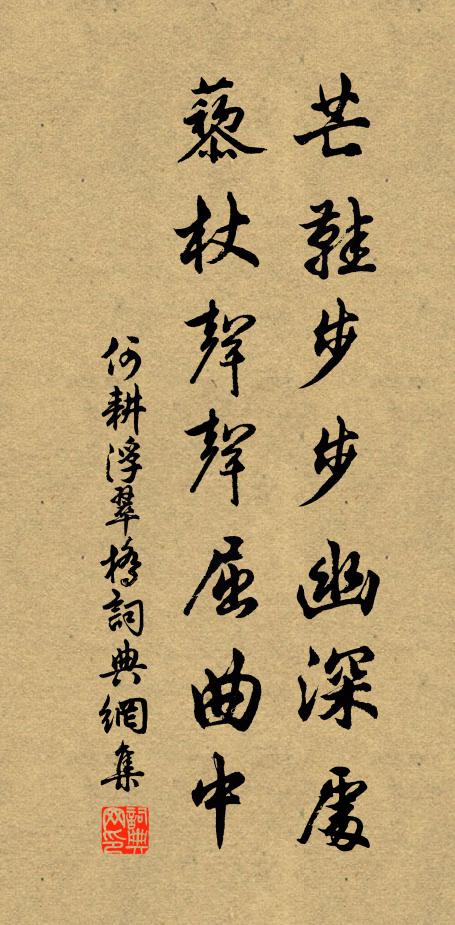 芒鞋步步幽深處
藜杖聲聲屈曲中
何耕浮翠橋詞典網集
詞典網印